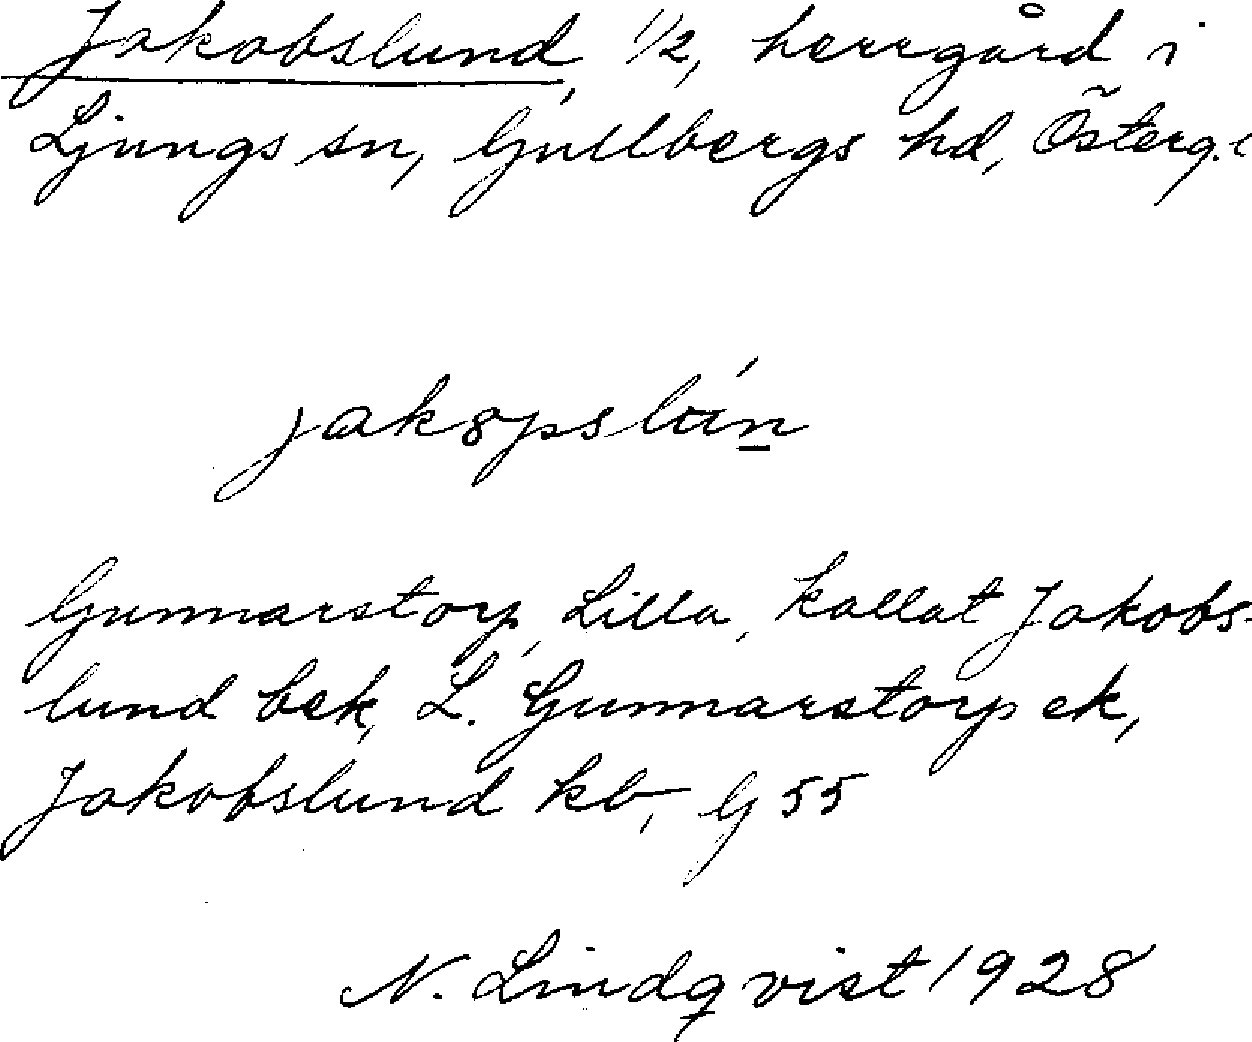 Jakobslund, 1/2, herrgård i
Ljungs sn, Gullbergs hd, Österg.
jakopslun
Gunnarstorp, Lilla, kallat Jakobs-
lund bek, L. Gunnarstorp ek,
Jakobslund kb, G 55
N. Lindqvist 1928